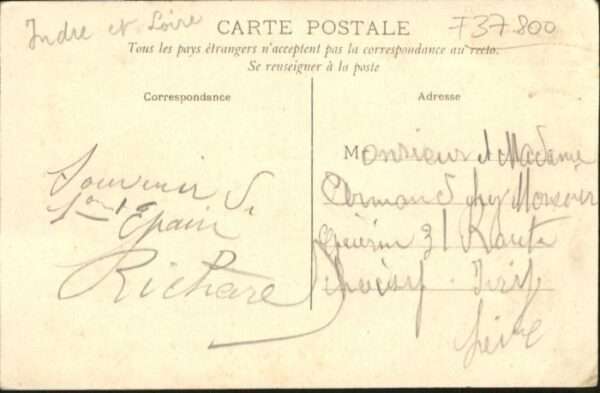 Indre et Loire
F37.800
CARTE POSTALE
Tous les pays étrangers n'acceptent pas la correspondance au recto.
Se renseigner à la poste
Correspondance
Adresse
Souvenir de
Epain
Richard
Monsieur et Madame
Armand chez Monsieur
Guérin 31 Route
Choisy
Seine